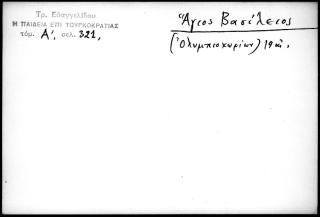 Τρ. Εὐαγγελίδου
Η ΠΑΙΔΕΙΑ ΕΠΙ ΤΟΥΡΚΟΚΡΑΤΙΑΣ
τόμ. Α΄. σελ. 321,
Ἅγιος Βασίλειος
(Ὀλυμπιοχωρίων) 19